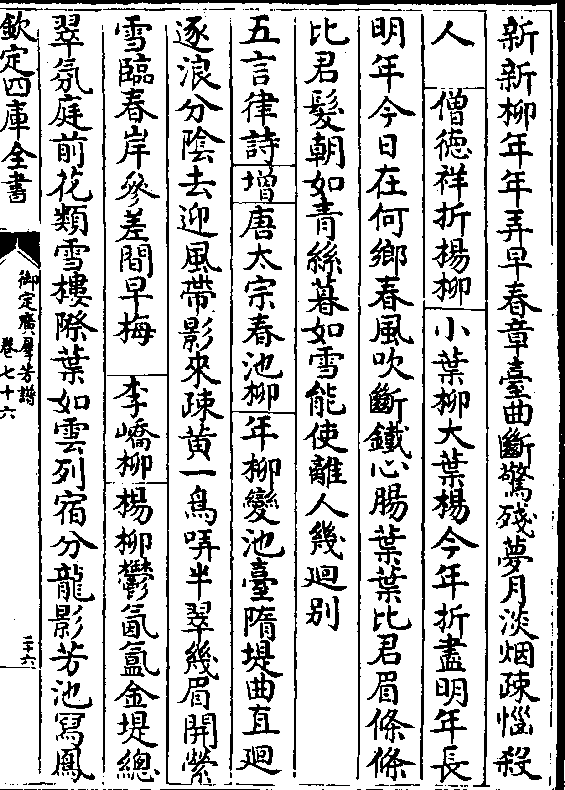 新新柳年年弄早春章臺曲斷驚殘夢月淡烟疎惱殺
人　僧徳祥折楊柳　小葉柳大葉楊今年折盡明年長
明年今日在何鄉春風吹斷鐵心腸葉葉比君眉條條
比君髮朝如青絲暮如雪能使離人幾廻别
五言律詩增唐太宗春池柳　年柳變池臺隋堤曲直廻
逐浪分陰去迎風帶影來疎黄一鳥哢半翠幾眉開縈
雪臨春岸參差間早梅　李嶠柳　楊柳鬱氤氲金堤總
翠氛庭前花類雪樓際葉如雲列宿分龍影芳池寫鳳
欽定四庫全書
御定廣羣芳譜
卷七十六
二十六